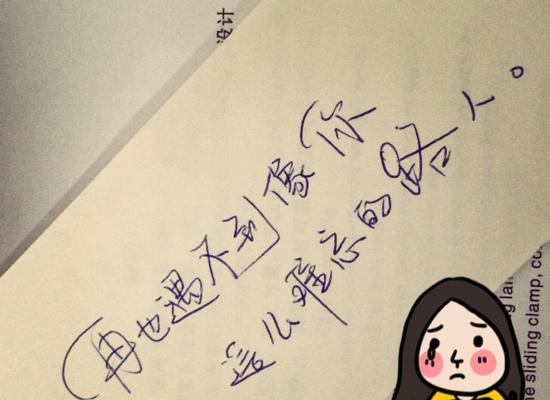 设计
(再也遇不到像你
这么难忘的路人。
ng lan
he sliding clamp, co